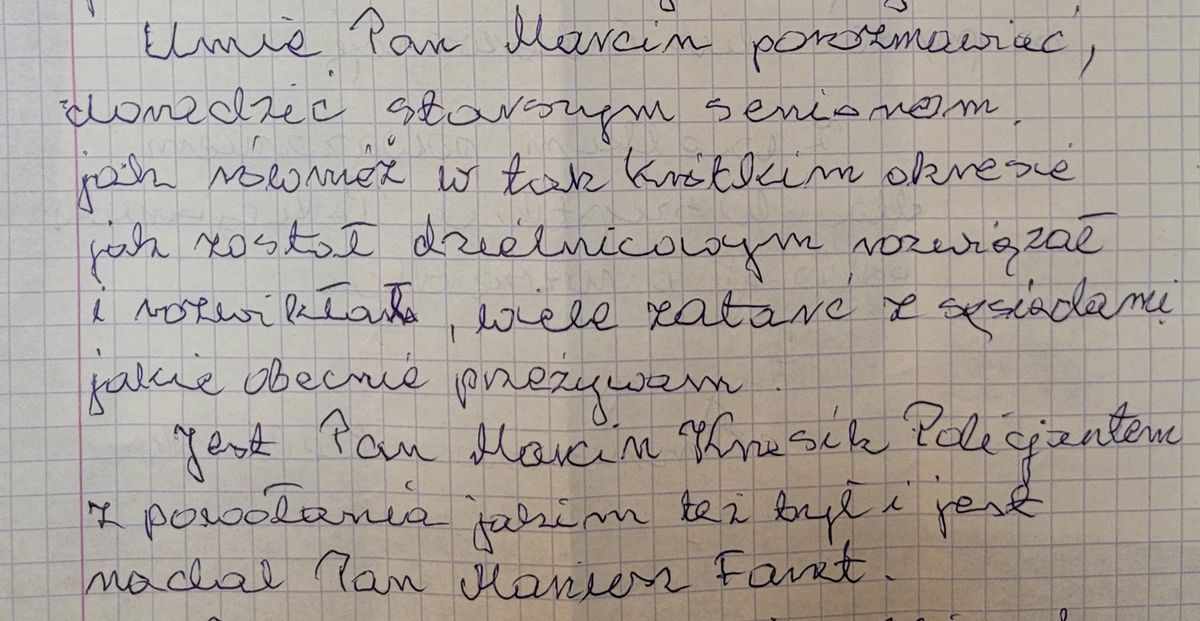 Umie Pan Marcin porozmawiać,
doradzić starszym seniorom.
jak również w tak krótkim okresie
jak został dzielnicowym rozwiązał
i rozwikłał, wiele zatarć z sąsiadami
jakie obecnie przeżywam.
Jest Pan Marcin Policjantem
z powołania jakim też był i jest
nadal Pan Mariusz